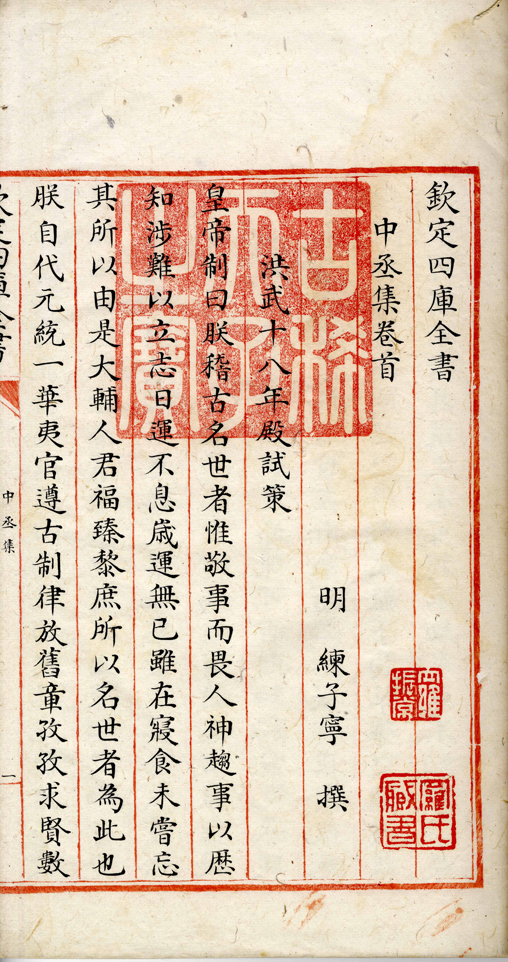 欽定四庫全書
中丞集卷首
明 練子寧 撰
洪武十八年殿試策
皇帝制曰朕稽古名世者惟敬事而畏人神趨事以歴
知涉難以立志日運不息歲運無已雖在寢食未嘗忘
其所以由是大輔人君福臻黎庶所以名世者為此也
朕自代元統一華夷官遵古制律放舊章孜孜求賢數
欽定四庫全書
中丞集
一
古稀天子之寶
羅振常
羅氏藏書